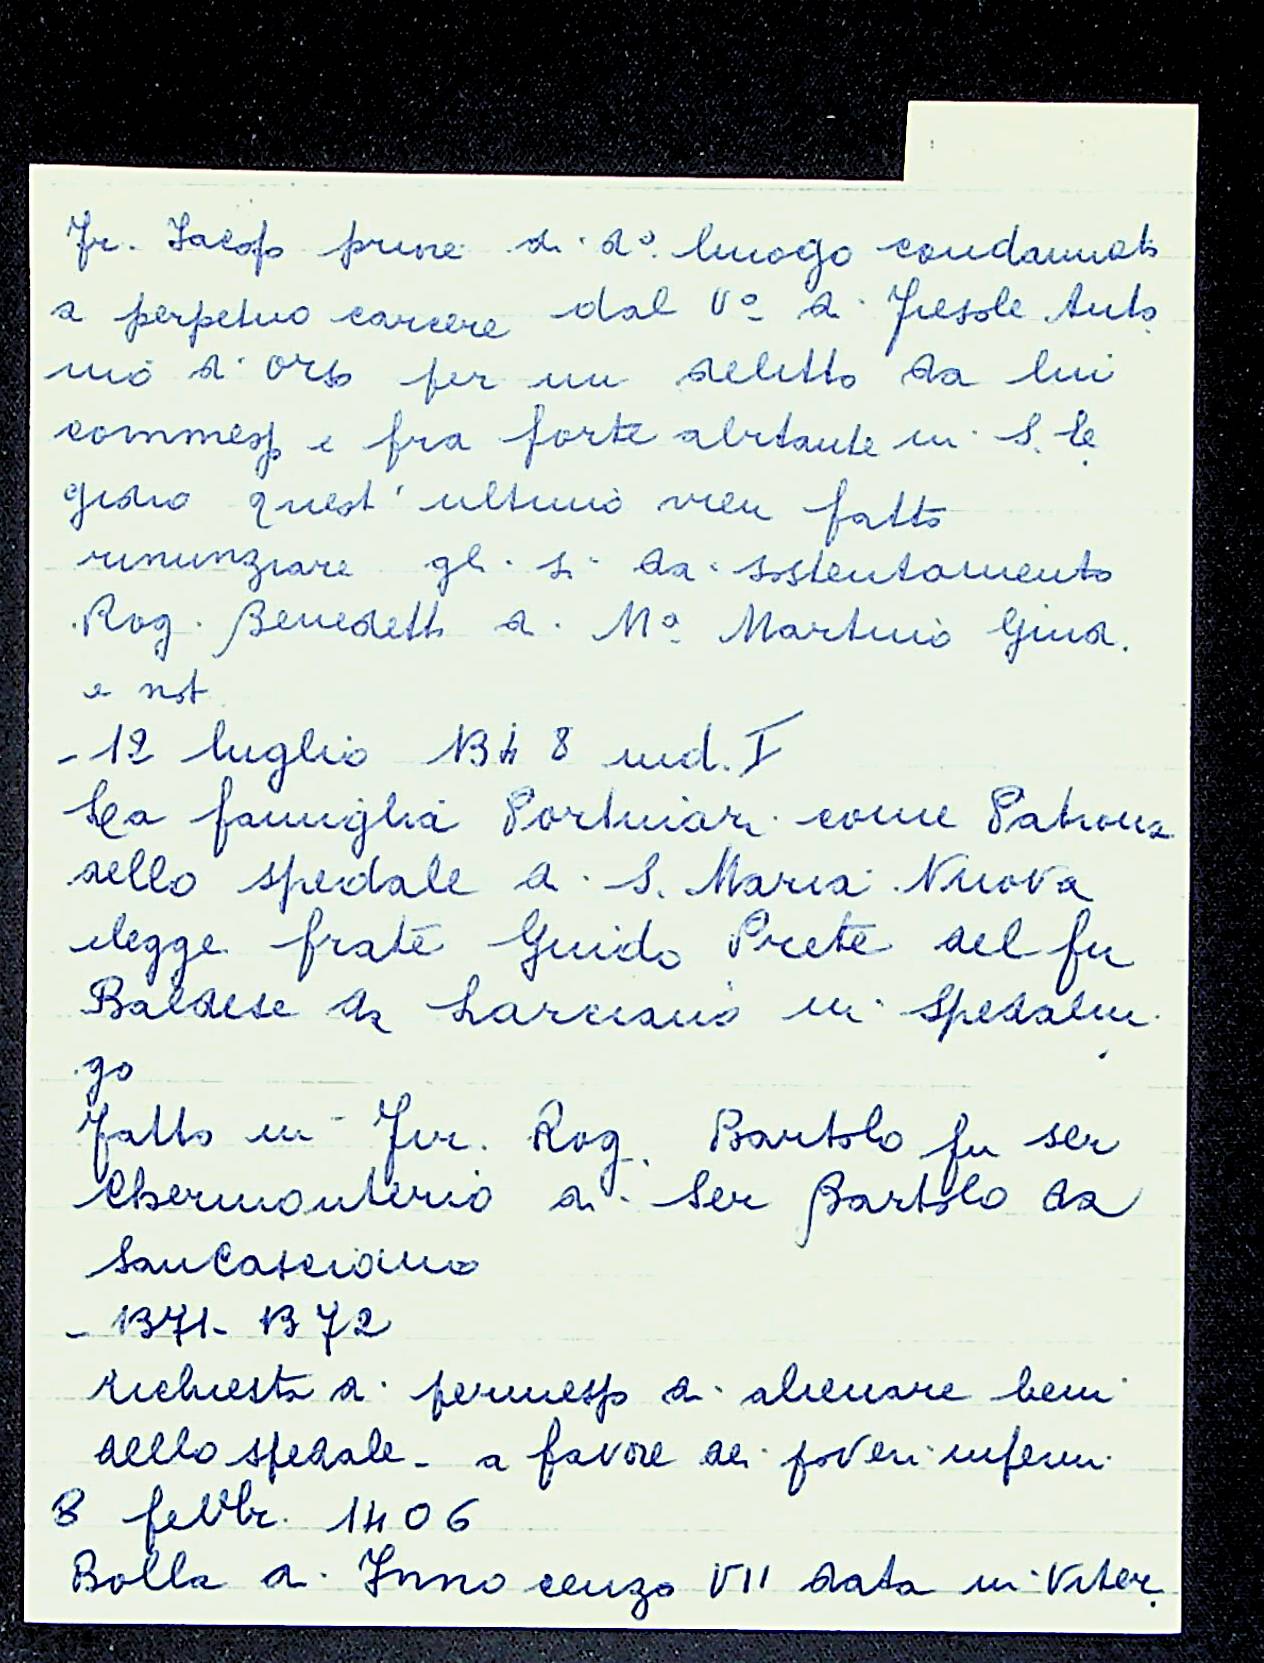 Fr. Iacopo priore di d.º luogo condannato
a perpetuo carcere dal Vº di Fiesole Anto
nio d'Orso per un delitto da lui
commesso e fra forte abitante in S. E
gidio quest'ultimo vien fatto
rinunziare gli si da sostentamento
Rog. Benedetto di Mº Martino Giud.
e not
- 12 luglio 1348 ind. I
La famiglia Portinari come Patrona
dello spedale di S. Maria Nuova
elegge frate Guido Prete del fu
Baldese da Larciano in Spedalin
go
fatto in Fir. Rog. Bartolo fu ser
Chermonterio di Ser Bartolo da
San Casciano
- 1371 - 1372
richiesta di permesso di alienare beni
dello spedale - a favore dei poveri infermi
8 febbr. 1406
Bolla di Innocenzo VII data in Viter